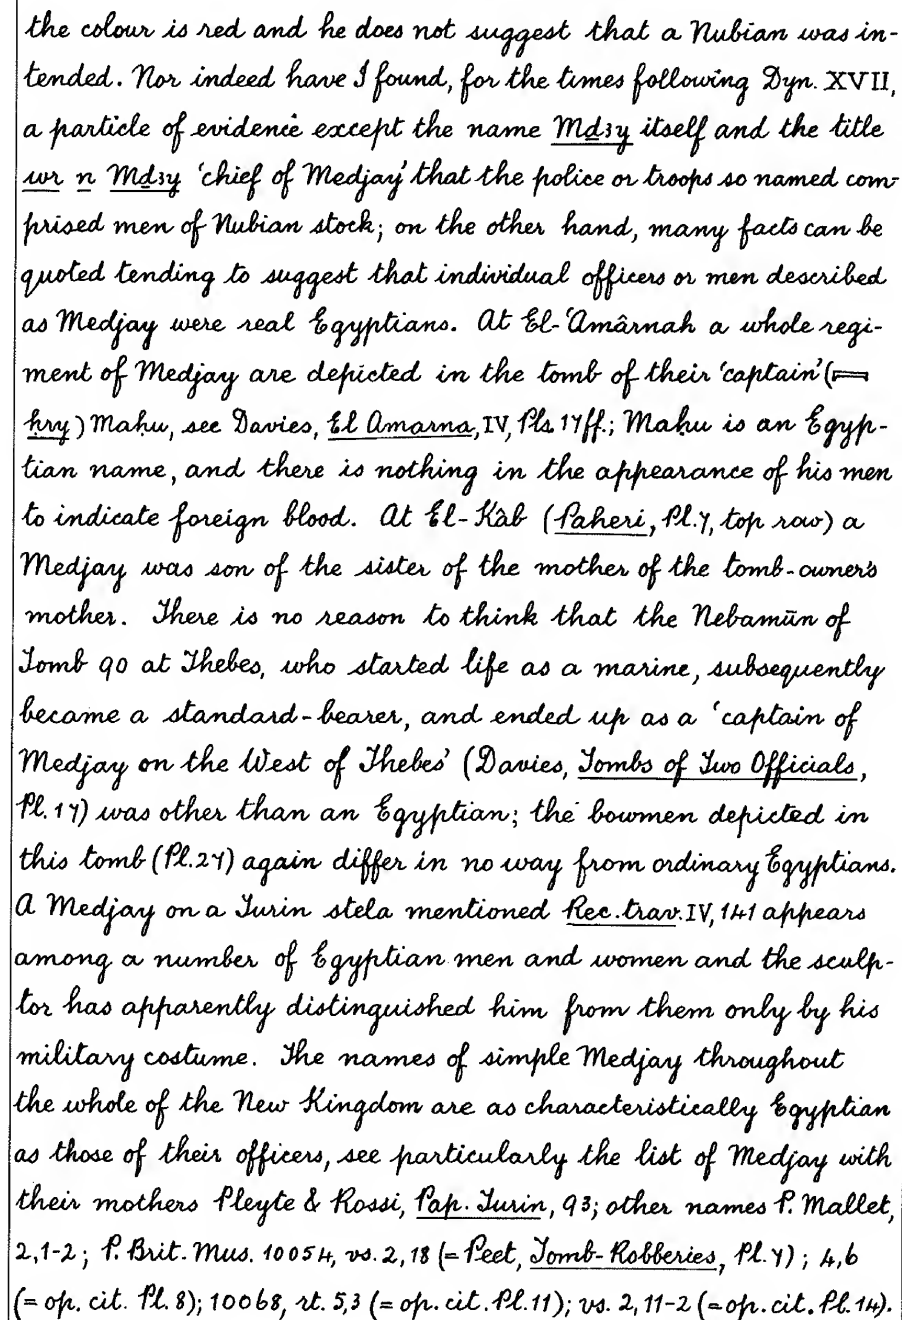 the colour is red and he does not suggest that a Nubian was in-
tended. Nor indeed have I found, for the times following Dyn. XVII,
a particle of evidence except the name Mḏꜣy itself and the title
wr n Mḏꜣy 'chief of Medjay' that the police or troops so named com-
prised men of Nubian stock; on the other hand, many facts can be
quoted tending to suggest that individual officers or men described
as Medjay were real Egyptians. At El-ʿAmârnah a whole regi-
ment of Medjay are depicted in the tomb of their 'captain' (
ḥry) Maḥu, see Davies, El Amarna, IV, Pls. 17ff.; Maḥu is an Egyp-
tian name, and there is nothing in the appearance of his men
to indicate foreign blood. At El-Kâb (Paheri, Pl.7, top row) a
Medjay was son of the sister of the mother of the tomb-owner's
mother. There is no reason to think that the Nebamūn of
Tomb 90 at Thebes, who started life as a marine, subsequently
became a standard-bearer, and ended up as a 'captain of
Medjay on the West of Thebes' (Davies, Tombs of Two Officials,
Pl. 17) was other than an Egyptian; the bowmen depicted in
this tomb (Pl.27) again differ in no way from ordinary Egyptians.
A Medjay on a Turin stela mentioned Rec. trav. IV, 141 appears
among a number of Egyptian men and women and the sculp-
tor has apparently distinguished him from them only by his
military costume. The names of simple Medjay throughout
the whole of the New Kingdom are as characteristically Egyptian
as those of their officers, see particularly the list of Medjay with
their mothers Pleyte & Rossi, Pap. Turin, 93; other names P. Mallet,
2,1-2; P. Brit. Mus. 10054, vs. 2,18 (= Peet, Tomb-Robberies, Pl. 7); 4,6
(= op. cit. Pl. 8); 10068, rt. 5,3 (= op. cit. Pl. 11); vs. 2, 11-2 (= op. cit. Pl. 14).